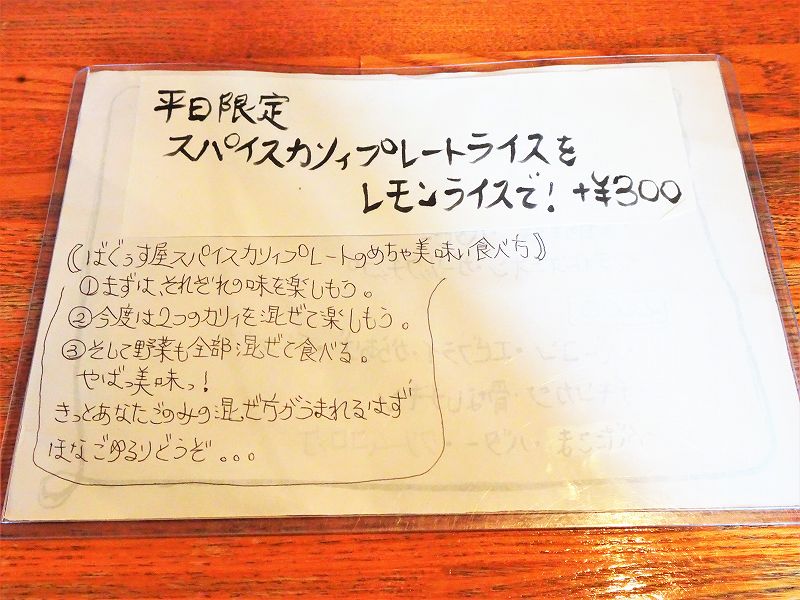 平日限定
スパイスカリィプレートライスを
レモンライスで! +¥300
《ばぐぅす屋スパイスカリィプレートのめちゃ美味い食べ方》
①まずは、それぞれの味を楽しもう。
②今度は2つのカリィを混ぜて楽しもう。
③そして野菜も全部混ぜて食べる。
やばっ美味っ!
きっとあなたごのみの混ぜ方がうまれるはず
ほなごゆるりどうぞ...